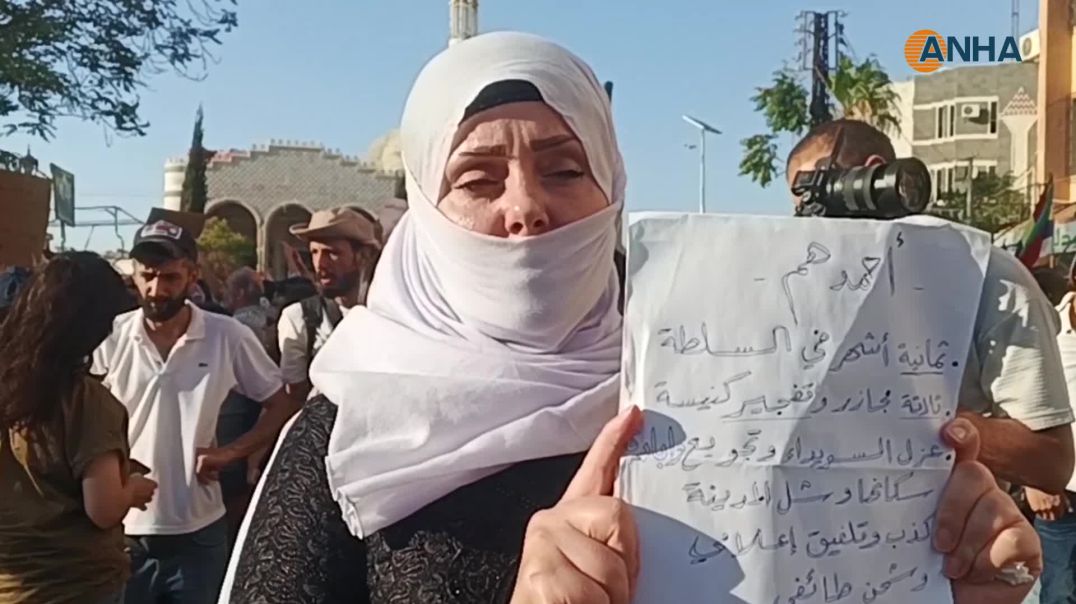 ANHA
- أحمدهم -
. ثمانية أشهر في السلطة
. ثلاثة مجازر وتفجير كنيسة
. عزل السويداء وتجويع وإبادة
سكانها وشل المدينة
كذب وتلفيق إعلامي
وشحن طائفي